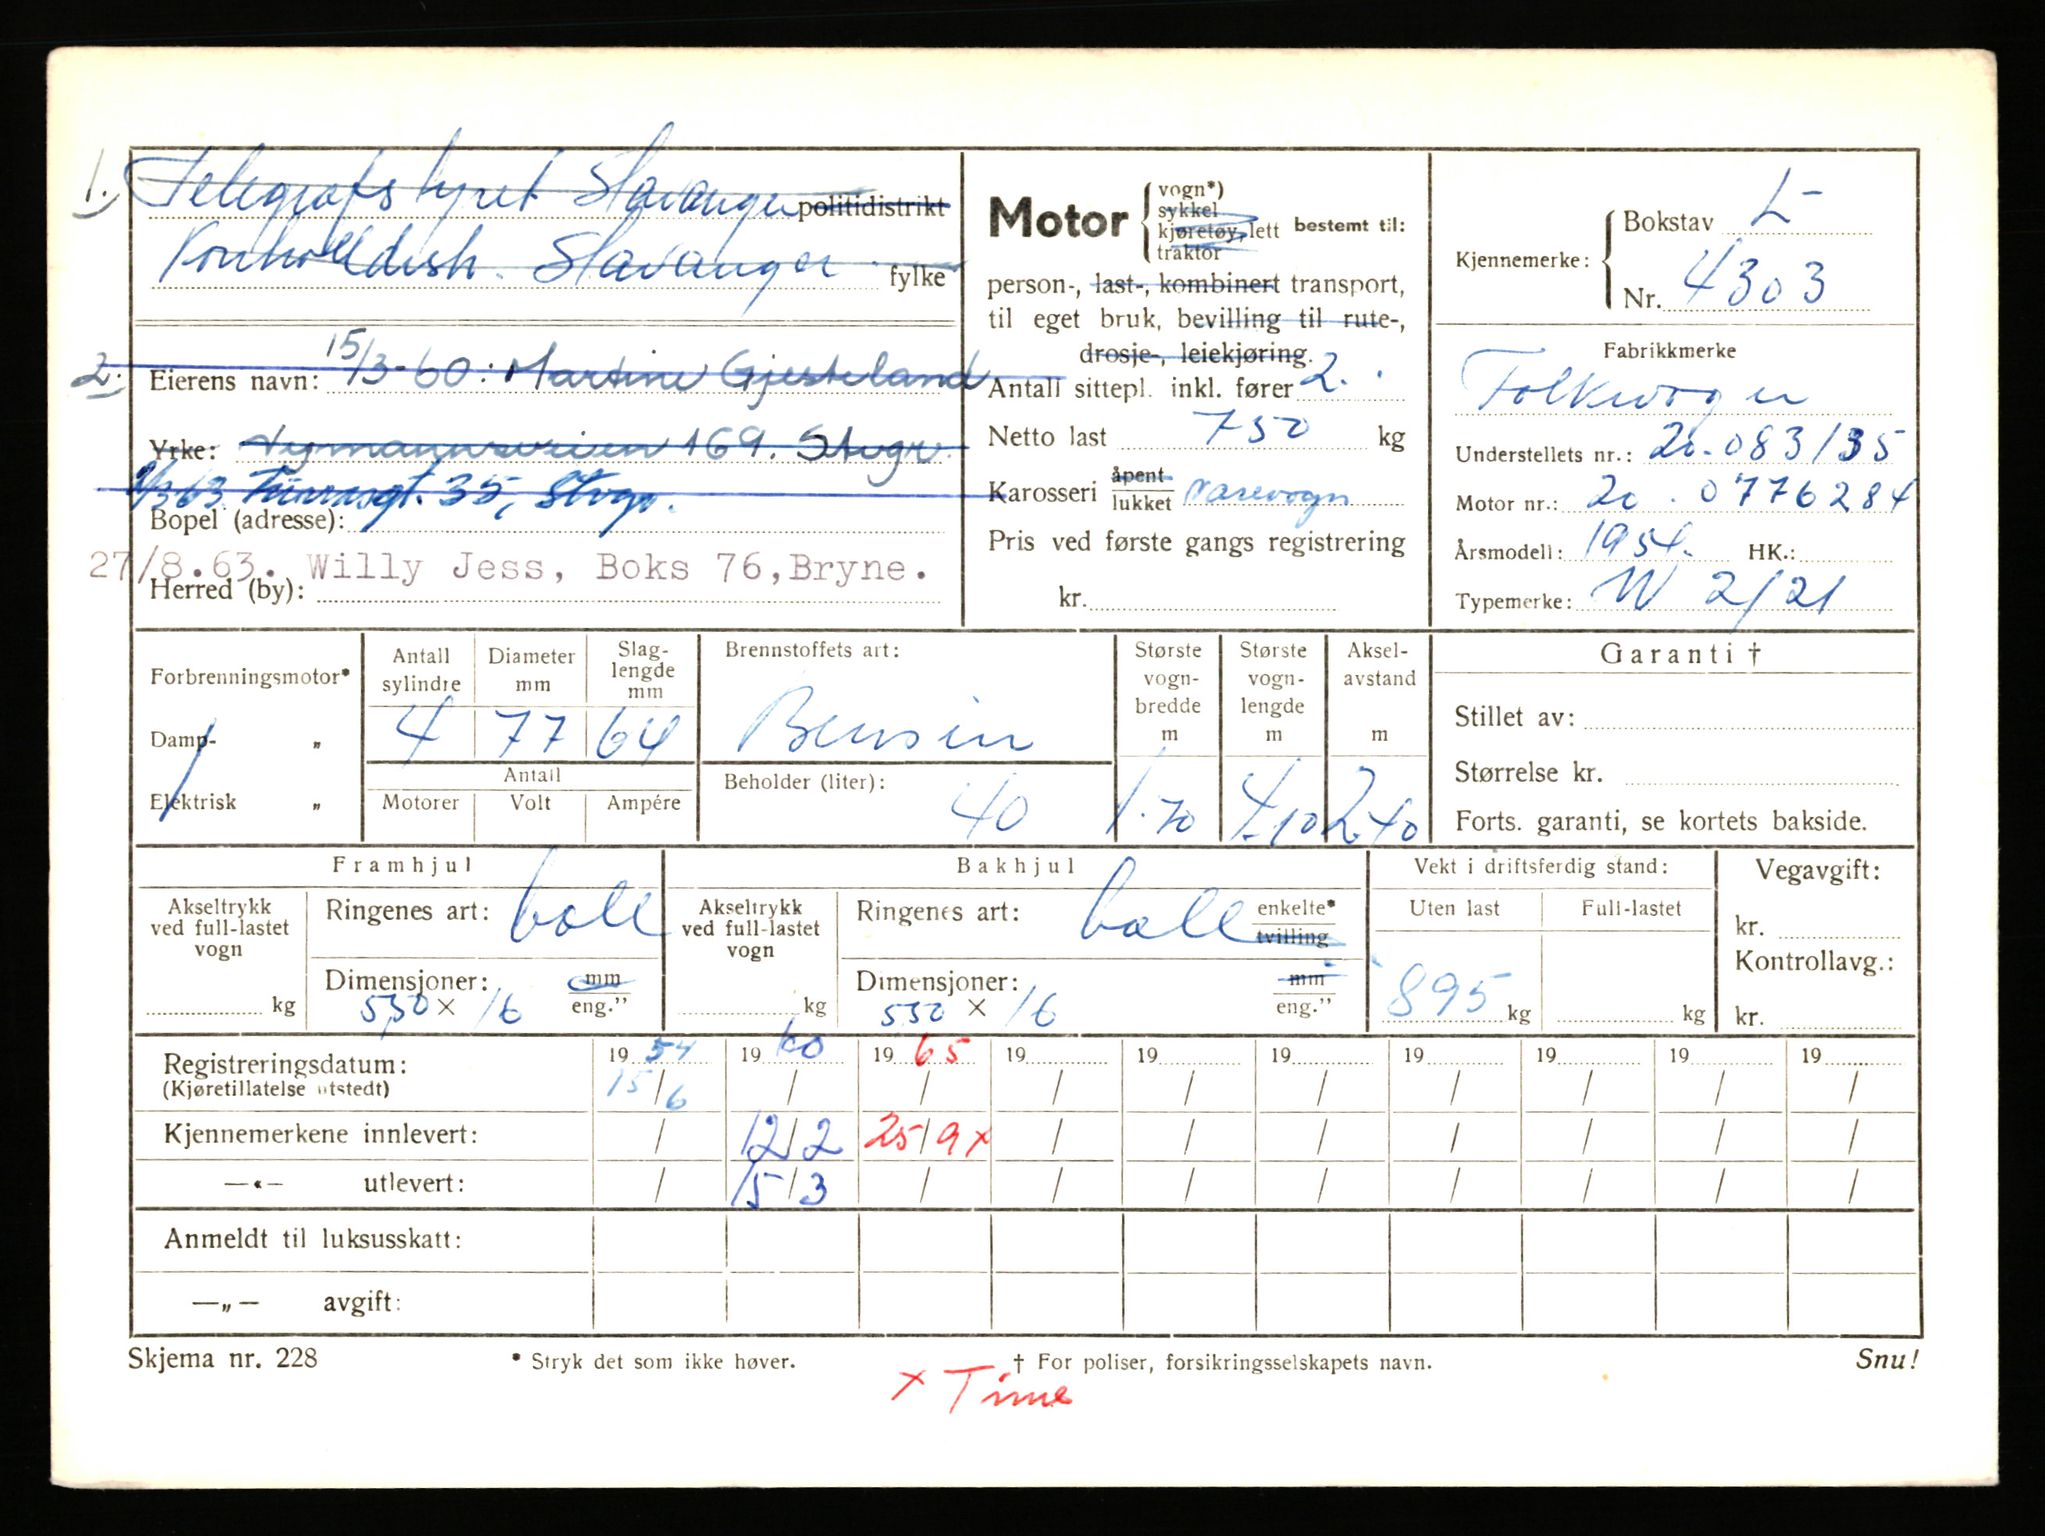 1. Telegrafstyret Stavanger politidistrikt
Stavanger fylke
2. Eierens navn: 15/3-60: Martine Gjesteland
Yrke: 169. Stvgr.
35, Stvgr.
Bopel (adresse):
27/8.63. Willy Jess, Boks 76, Bryne.
Herred (by):
Motor vogn*) sykkel kjøretøy, lett traktor bestemt til:
person-, last-, kombinert transport,
til eget bruk, bevilling til rute-,
drosje-, leiekjøring.
Antall sittepl. inkl. fører 2.
Netto last 750 kg
Karosseri åpent lukket varevogn
Pris ved første gangs registrering
kr.
Kjennemerke: Bokstav L-
Nr. 4303
Fabrikkmerke
Folkvogn
Understellets nr.: 20.083135
Motor nr.: 20.0776284
Årsmodell: 1954. HK.:
Typemerke: W 2/21
Forbrenningsmotor*
Damp- „
Elektrisk „
Antall sylindre 4
Diameter mm 77
Slag-lengde mm 64
Antall
Motorer Volt Ampére
Brennstoffets art:
Bensin
Beholder (liter): 40
Største vogn-bredde m 1.70
Største vogn-lengde m 4.10
Aksel-avstand m 2.40
Garanti †
Stillet av:
Størrelse kr.
Forts. garanti, se kortets bakside.
Framhjul
Akseltrykk ved full-lastet vogn kg
Ringenes art: ball
Dimensjoner: mm eng."
550 × 16
Bakhjul
Akseltrykk ved full-lastet vogn kg
Ringenes art: ball enkelte* tvilling
Dimensjoner: mm eng."
550 × 16
Vekt i driftsferdig stand:
Uten last Full-lastet
895 kg kg
Vegavgift:
kr.
Kontrollavg.:
kr.
Registreringsdatum: 19 54 19 60 19 65 19 19 19 19 19 19 19
(Kjøretillatelse utstedt) 15/6 / / / / / / / / /
Kjennemerkene innlevert: / 12/2 25/9 x / / / / / / /
—«— utlevert: / 15/3 / / / / / / / /
Anmeldt til luksusskatt:
—„— avgift:
Skjema nr. 228 * Stryk det som ikke høver. † For poliser, forsikringsselskapets navn. Snu!
x Time